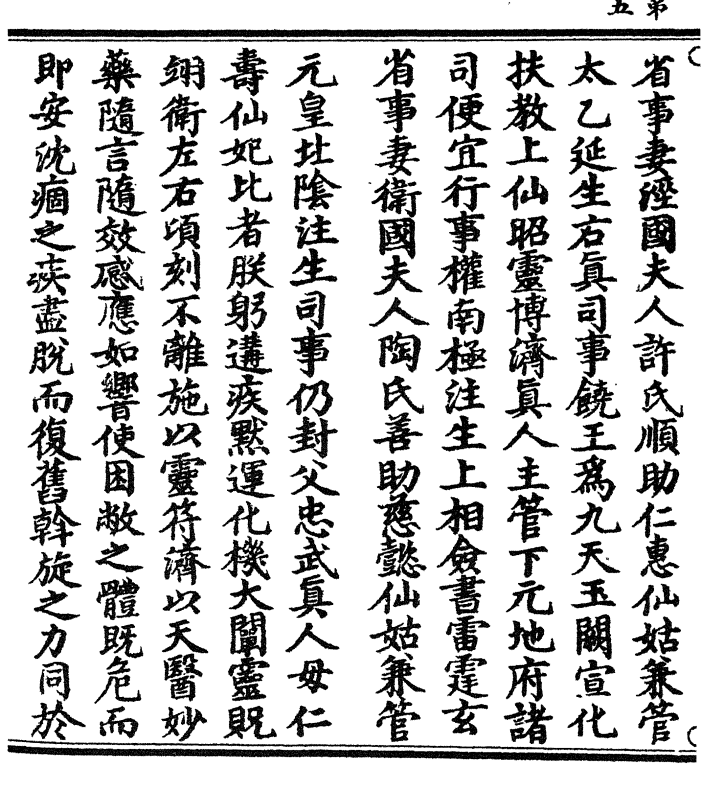 第五
省事妻溼國夫人許氏順助仁惠仙姑兼管
太乙延生右眞司事饒王爲九天玉闕宣化
扶教上仙昭靈博濟眞人主管下元地府諸
司便宜行事權南極注生上相僉書雷霆玄
省事妻衛國夫人陶氏善助慈懿仙姑兼管
元皇壯陰注生司事仍封父忠武眞人母仁
壽仙妃比者朕躬遘疾默運化機大闡靈貺
翊衛左右頃刻不離施以靈符濟以天醫妙
藥隨言隨效感應如響使困敝之體既危而
即安沈痼之疾盡脫而復舊斡旋之力同於